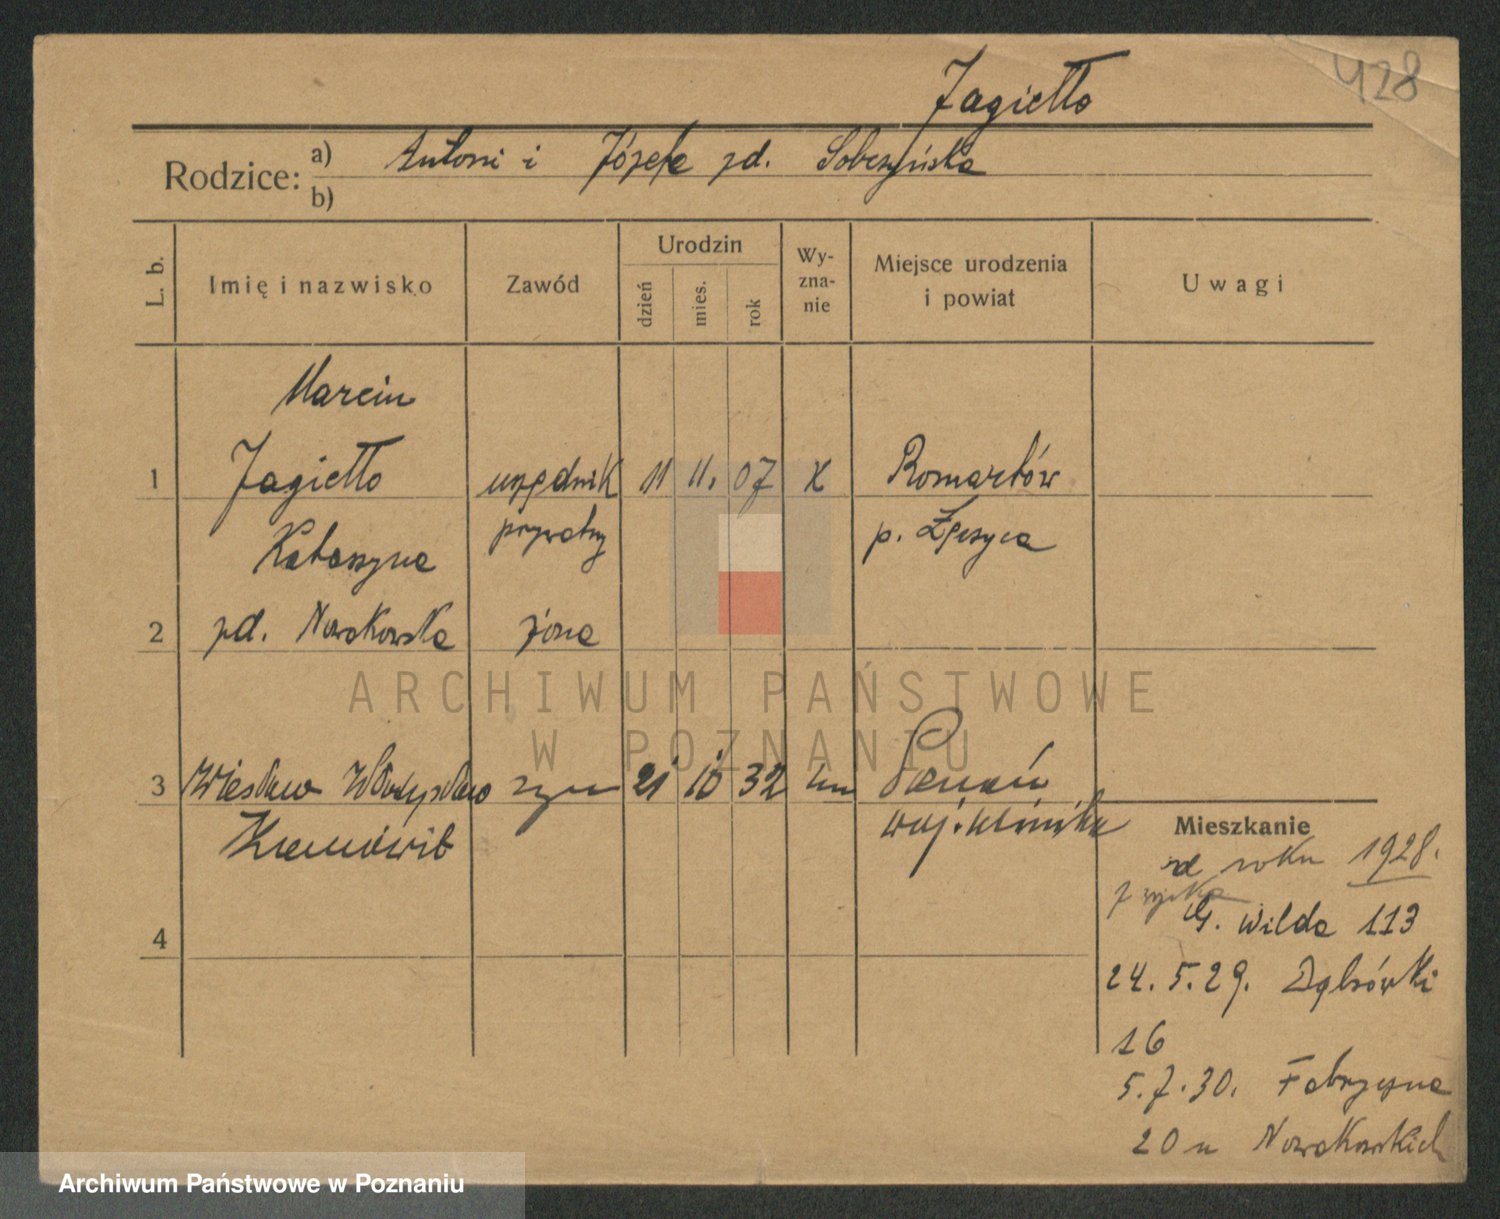 428
Jagiełło
Rodzice: a) Antoni i Józefa zd. Sobczyńska
b)
L. b. Imię i nazwisko Zawód Urodzin dzień mies. rok Wyznanie Miejsce urodzenia i powiat Uwagi
Marcin
1 Jagiełło urzędnik 11 11. 07 K Romartów
Katarzyna prywatny p. Łęczyca
2 zd. Nowakowska żona
ARCHIWUM PAŃSTWOWE
W POZNANIU
3 Wiesław Władysław syn 21 10 32 Poznań
Ziemowit woj. klinika
Mieszkanie
od roku 1928.
G. Wilda 113
4
24. 5. 29. Dąbrówki
16
5. 7. 30. Fabryczna
20 u Nowakowskich
Archiwum Państwowe w Poznaniu